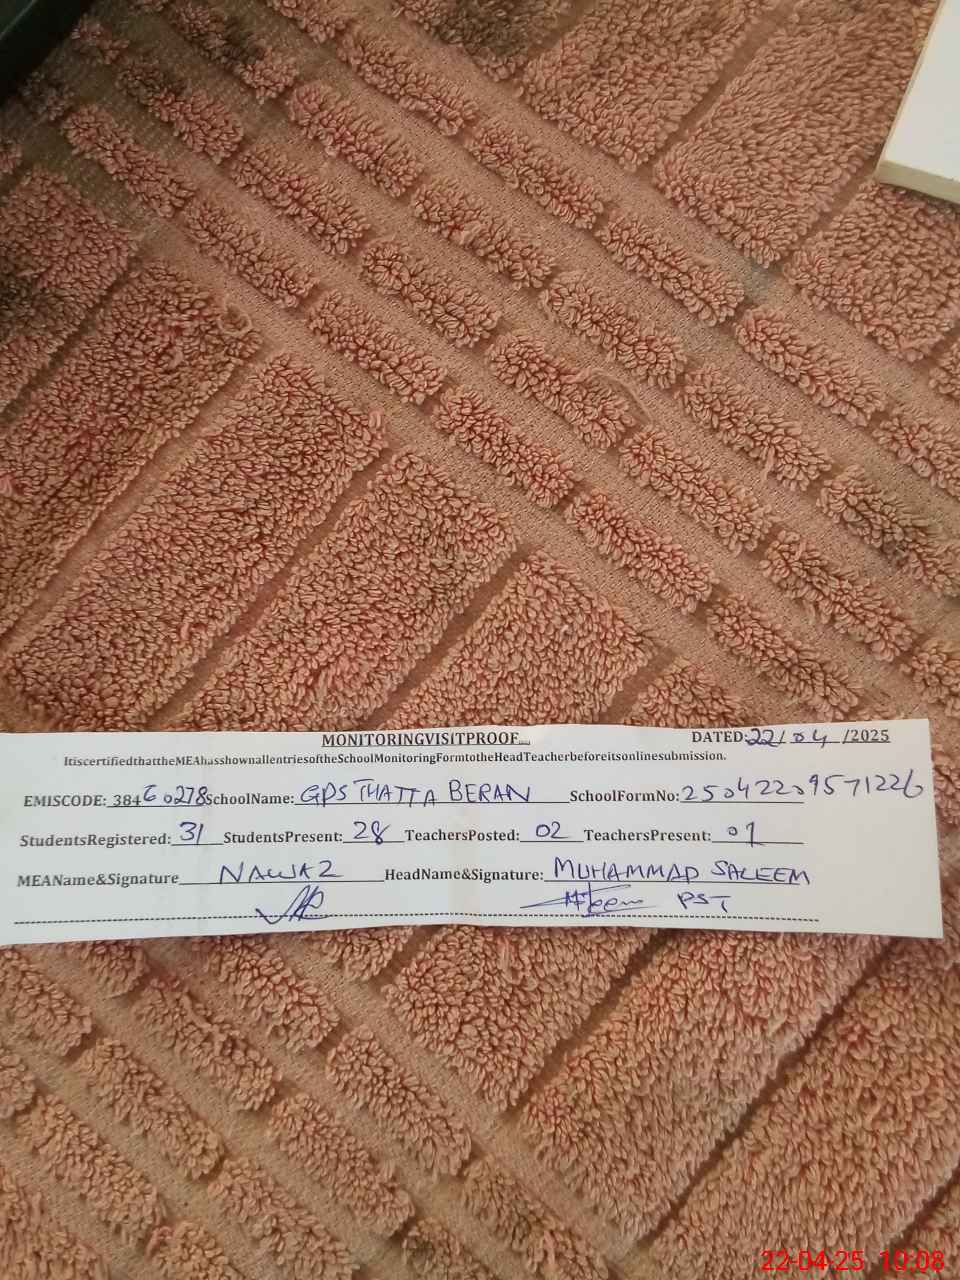 MONITORINGVISITPROOF DATED:22/04/2025
ItiscertifiedthattheMEAhasshownallentriesoftheSchoolMonitoringFormtotheHeadTeacherbeforeitsonlinesubmission.
EMISCODE: 38460278 SchoolName: GPS THATTA BERAN SchoolFormNo: 25042209571226
StudentsRegistered: 31 StudentsPresent: 28 TeachersPosted: 02 TeachersPresent: 01
MEAName&Signature NAWAZ HeadName&Signature: MUHAMMAD SALEEM
PST
22-04-25 10:08